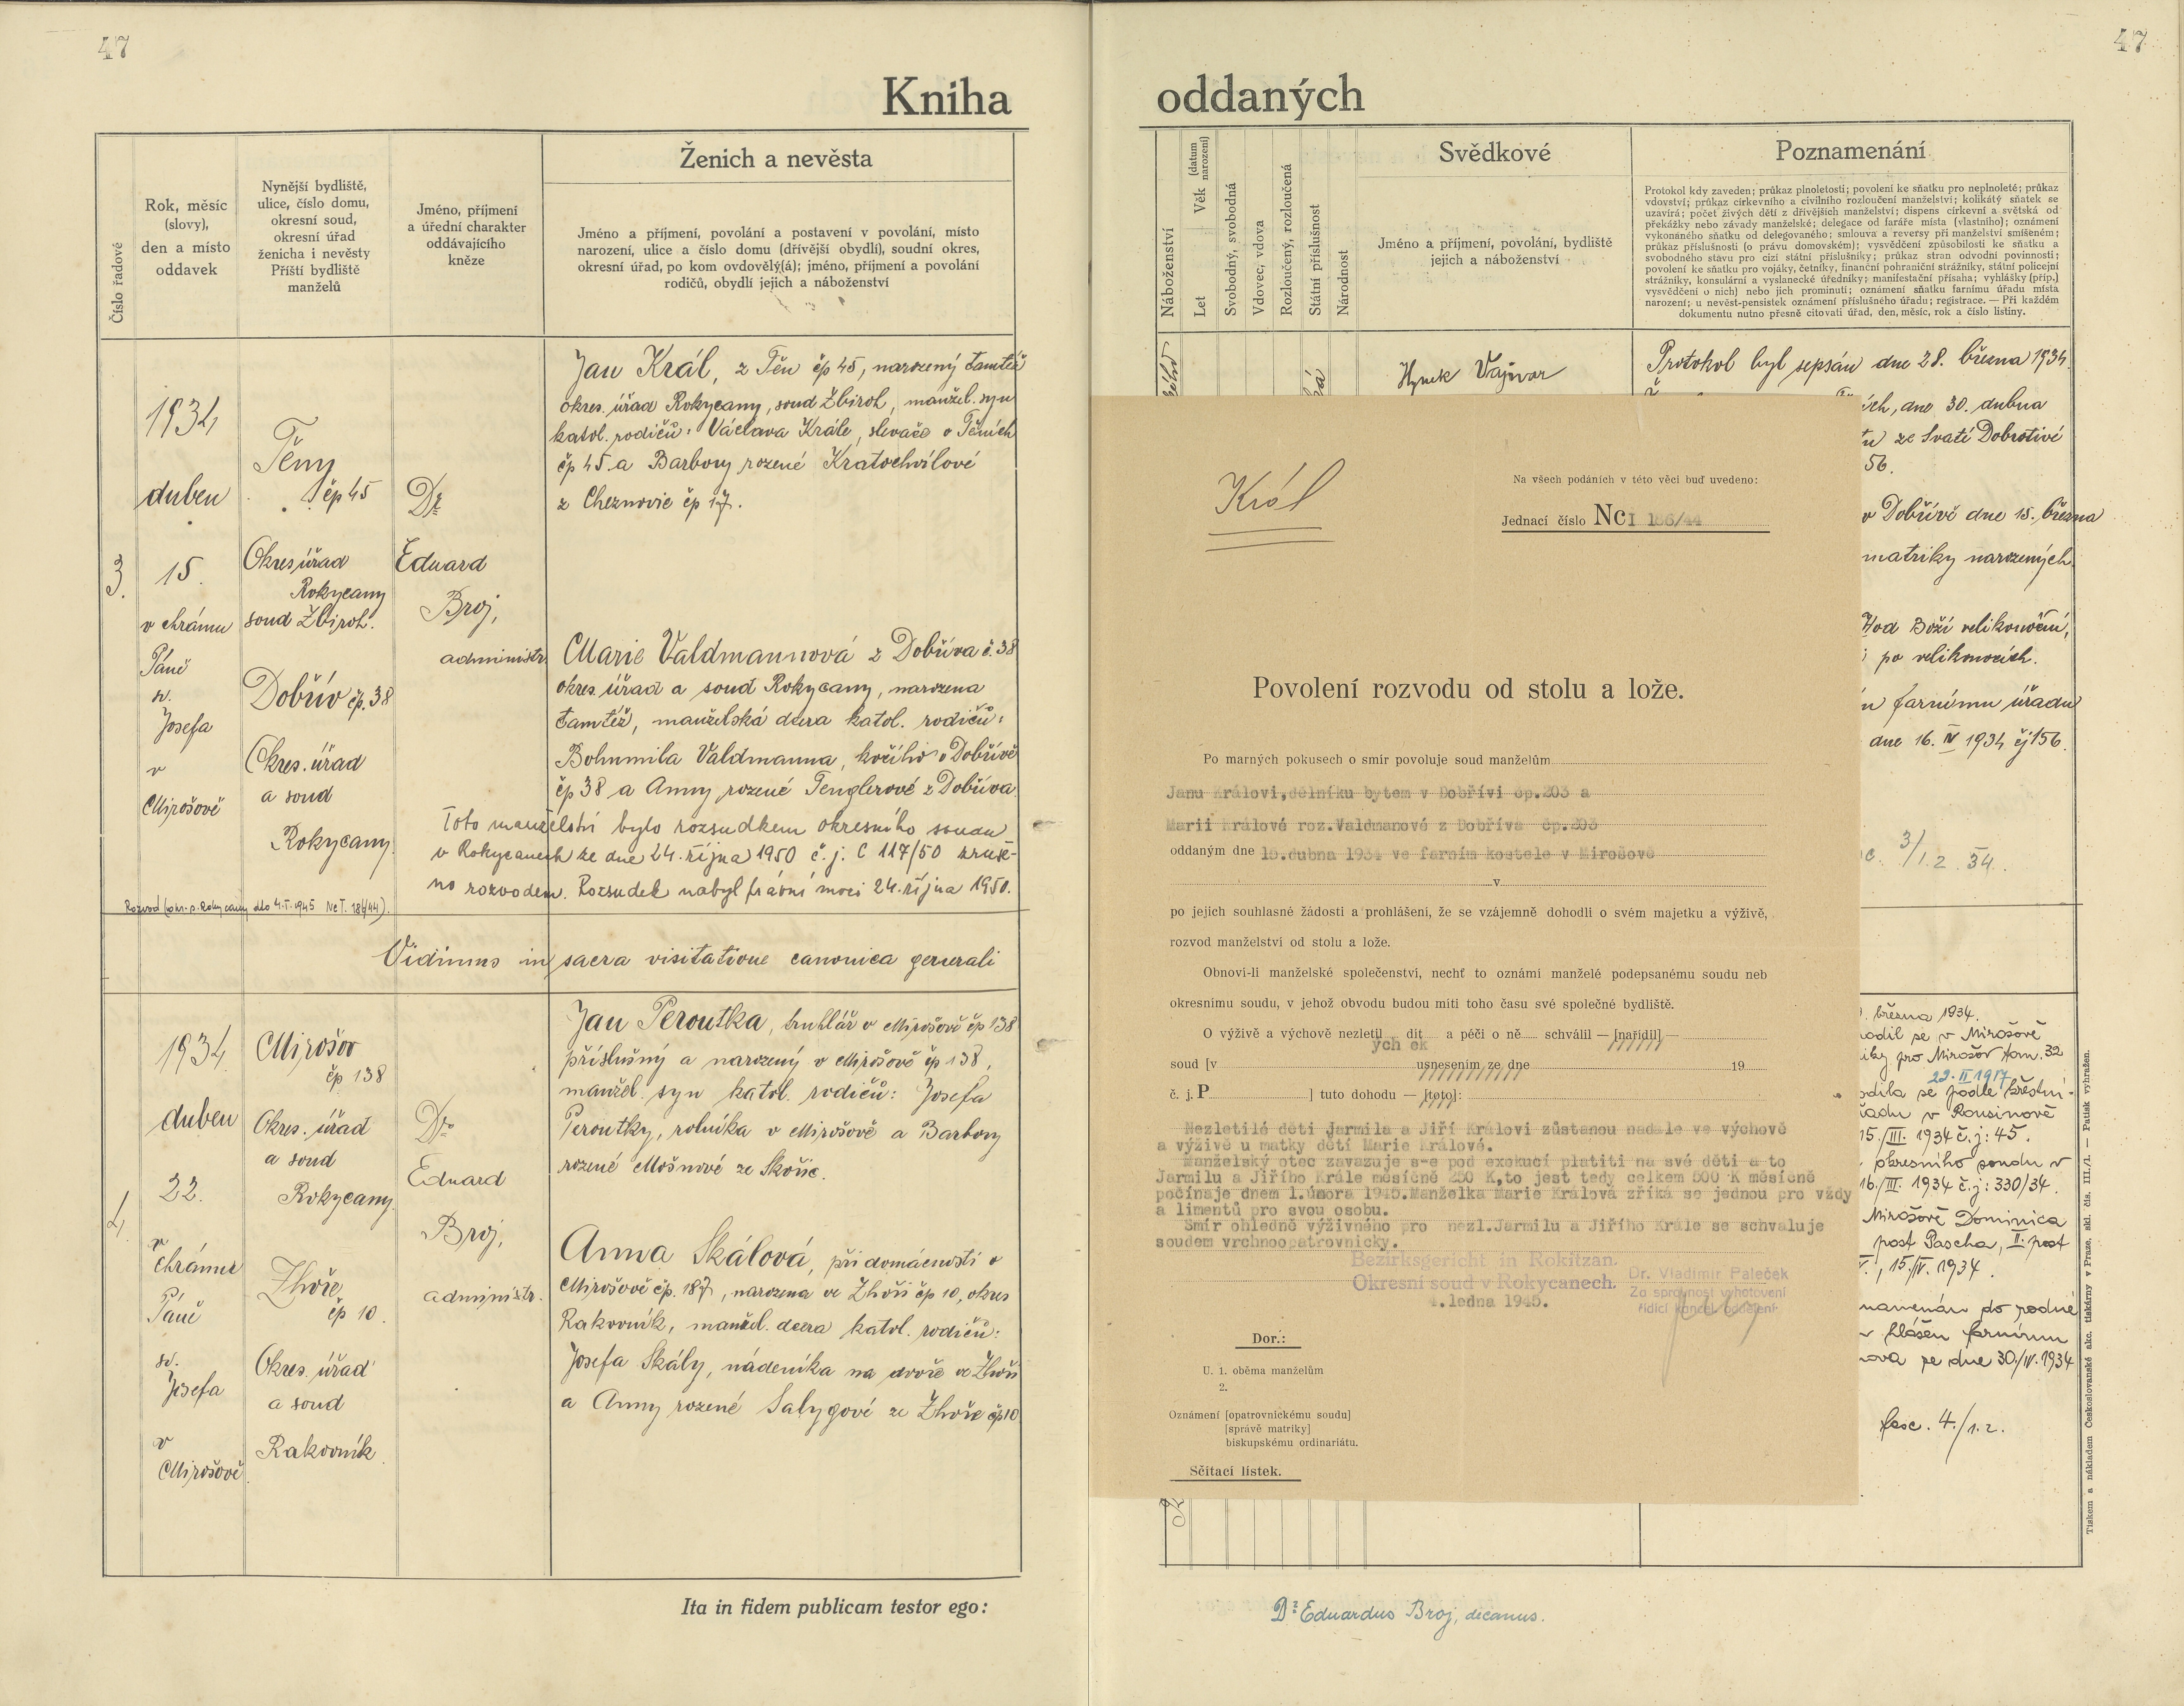 47
Kniha
Číslo řadové
Rok, měsíc
(slovy),
den a místo
oddavek
Nynější bydliště,
ulice, číslo domu,
okresní soud,
okresní úřad
ženicha i nevěsty
Příští bydliště
manželů
Jméno, příjmení
a úřední charakter
oddávajícího
kněze
Ženich a nevěsta
Jméno a příjmení, povolání a postavení v povolání, místo
narození, ulice a číslo domu (dřívější obydlí), soudní okres,
okresní úřad, po kom ovdovělý(á); jméno, příjmení a povolání
rodičů, obydlí jejich a náboženství
3.
1934
duben
15.
v chrámu
Páně
sv.
Josefa
v
Mirošově
Těny
čp 45
Okres. úřad
Rokycany
soud Zbiroh.
Dobřív čp. 38
Okres. úřad
a soud
Rokycany.
Dr
Eduard
Broj,
administr.
Jan Král, z Těn čp 45, narozený tamtéž
okres. úřad Rokycany, soud Zbiroh, manžel. syn
katol. rodičů: Václava Krále, slevače v Těních
čp 45 a Barbory rozené Kratochvílové
z Cheznovic čp 17.
Marie Valdmannová z Dobříva č. 38
okres. úřad a soud Rokycany, narozena
tamtéž, manželská dcera katol. rodičů:
Bohumila Valdmanna, kočího v Dobřívě
čp 38 a Anny rozené Tenglerové z Dobříva.
Toto manželství bylo rozsudkem okresního soudu
v Rokycanech ze dne 24. října 1950 č. j. C 117/50 zruše-
no rozvodem. Rozsudek nabyl právní moci 24. října 1950.
Rozvod (okr. s. Rokycany dto 4.I.1945 Nc I. 186/44).
Vidimus in sacra visitatione canonica generali
4.
1934
duben
22.
v
chrámu
Páně
sv.
Josefa
v
Mirošově
Mirošov
čp 138
Okres. úřad
a soud
Rokycany.
Zhoře
čp 10.
Okres. úřad
a soud
Rakovník
Dr.
Eduard
Broj,
administr.
Jan Peroutka, truhlář v Mirošově čp 138
příslušný a narozený v Mirošově čp 138,
manžel. syn katol. rodičů: Josefa
Peroutky, rolníka v Mirošově a Barbory
rozené Mošnové ze Skořic.
Anna Skálová, při domácnosti v
Mirošově čp. 187, narozena ve Zhoři čp 10, okres
Rakovník, manžel. dcera katol. rodičů:
Josefa Skály, nádeníka na dvoře ve Zhoři
a Anny rozené Salygové ze Zhoře čp 10
Ita in fidem publicam testor ego:
47
oddaných
Náboženství
Let
Věk (datum narození)
Svobodný, svobodná
Vdovec, vdova
Rozloučený, rozloučená
Státní příslušnost
Národnost
Svědkové
Jméno a příjmení, povolání, bydliště
jejich a náboženství
Poznamenání
Protokol kdy zaveden; průkaz plnoletosti; povolení ke sňatku pro neplnoleté; průkaz
vdovství; průkaz církevního a civilního rozloučení manželství; kolikátý sňatek se
uzavírá; počet živých dětí z dřívějších manželství; dispens církevní a světská od
překážky nebo závady manželské; delegace od faráře místa (vlastního); oznámení
vykonaného sňatku od delegovaného; smlouva a reversy při manželství smíšeném;
průkaz příslušnosti (o právu domovském); vysvědčení způsobilosti ke sňatku a
svobodného stavu pro cizí státní příslušníky; průkaz stran odvodní povinnosti;
povolení ke sňatku pro vojáky, četníky, finanční pohraniční strážníky, státní policejní
strážníky, konsulární a vyslanecké úředníky; manifestační přísaha; vyhlášky (příp.)
vysvědčení o nich) nebo jich prominutí; oznámení sňatku farnímu úřadu místa
narození; u nevěst-pensistek oznámení příslušného úřadu; registrace. — Při každém
dokumentu nutno přesně citovati úřad, den, měsíc, rok a číslo listiny.
Hynek Vajvar
Protokol byl sepsán dne 28. března 1934.
ích, dne 30. dubna
ze Svaté Dobrotivé
56.
v Dobřívě dne 15. března
matriky narozených
Hod Boží velikonoční,
po velikonocích.
farnímu úřadu
dne 16. IV 1934 čj 156.
3/1.2. 34.
Král
Na všech podáních v této věci buď uvedeno:
Jednací číslo Nc I 186/44
Povolení rozvodu od stolu a lože.
Po marných pokusech o smír povoluje soud manželům
Janu Královi,dělníku bytem v Dobřívi čp.203 a
Marii Králové roz.Valdmanové z Dobříva čp.203
oddaným dne 15.dubna 1934 ve farním kostele v Mirošově
v
po jejich souhlasné žádosti a prohlášení, že se vzájemně dohodli o svém majetku a výživě,
rozvod manželství od stolu a lože.
Obnoví-li manželské společenství, nechť to oznámí manželé podepsanému soudu neb
okresnímu soudu, v jehož obvodu budou míti toho času své společné bydliště.
O výživě a výchově nezletil ých dít ek a péči o ně schválil — [nařídil] —
soud [v usnesením ze dne 19
č. j. P ] tuto dohodu — [toto]:
Nezletilé děti Jarmila a Jiří Královi zůstanou nadále ve výchově
a výživě u matky dětí Marie Králové.
Manželský otec zavazuje s-e pod exekucí platiti na své děti a to
Jarmilu a Jiřího Krále měsíčně 250 K,to jest tedy celkem 500 K měsíčně
počínaje dnem 1.února 1945.Manželka Marie Králová zříká se jednou pro vždy
a limentů pro svou osobu.
Smír ohledně výživného pro nezl.Jarmilu a Jiřího Krále se schvaluje
soudem vrchnoopatrovnicky.
Bezirksgericht in Rokitzan.
Okresní soud v Rokycanech.
4.ledna 1945.
Dr. Vladimír Paleček
Za správnost vyhotovení
řídící kancel. oddělení:
Dor.:
U. 1. oběma manželům
2.
Oznámení [opatrovnickému soudu]
[správě matriky]
biskupskému ordinariátu.
Sčítací lístek.
března 1934.
rodil se v Mirošově
pro Mirošov tom. 32
22.II.1917
podle křestní-
v Rousinově
15./III. 1934 č.j: 45.
okresního soudu v
16./III. 1934 č.j: 330/34.
Mirošově Dominica
post Pascha, II. post
15./IV. 1934.
hlášen farnímu
ze dne 30./IV. 1934
fasc. 4./1.2.
Tiskem a nákladem Československé akc. tiskárny v Praze, skl. čís. III./1. — Patisk vyhražen.
Dr Eduardus Broj, decanus.